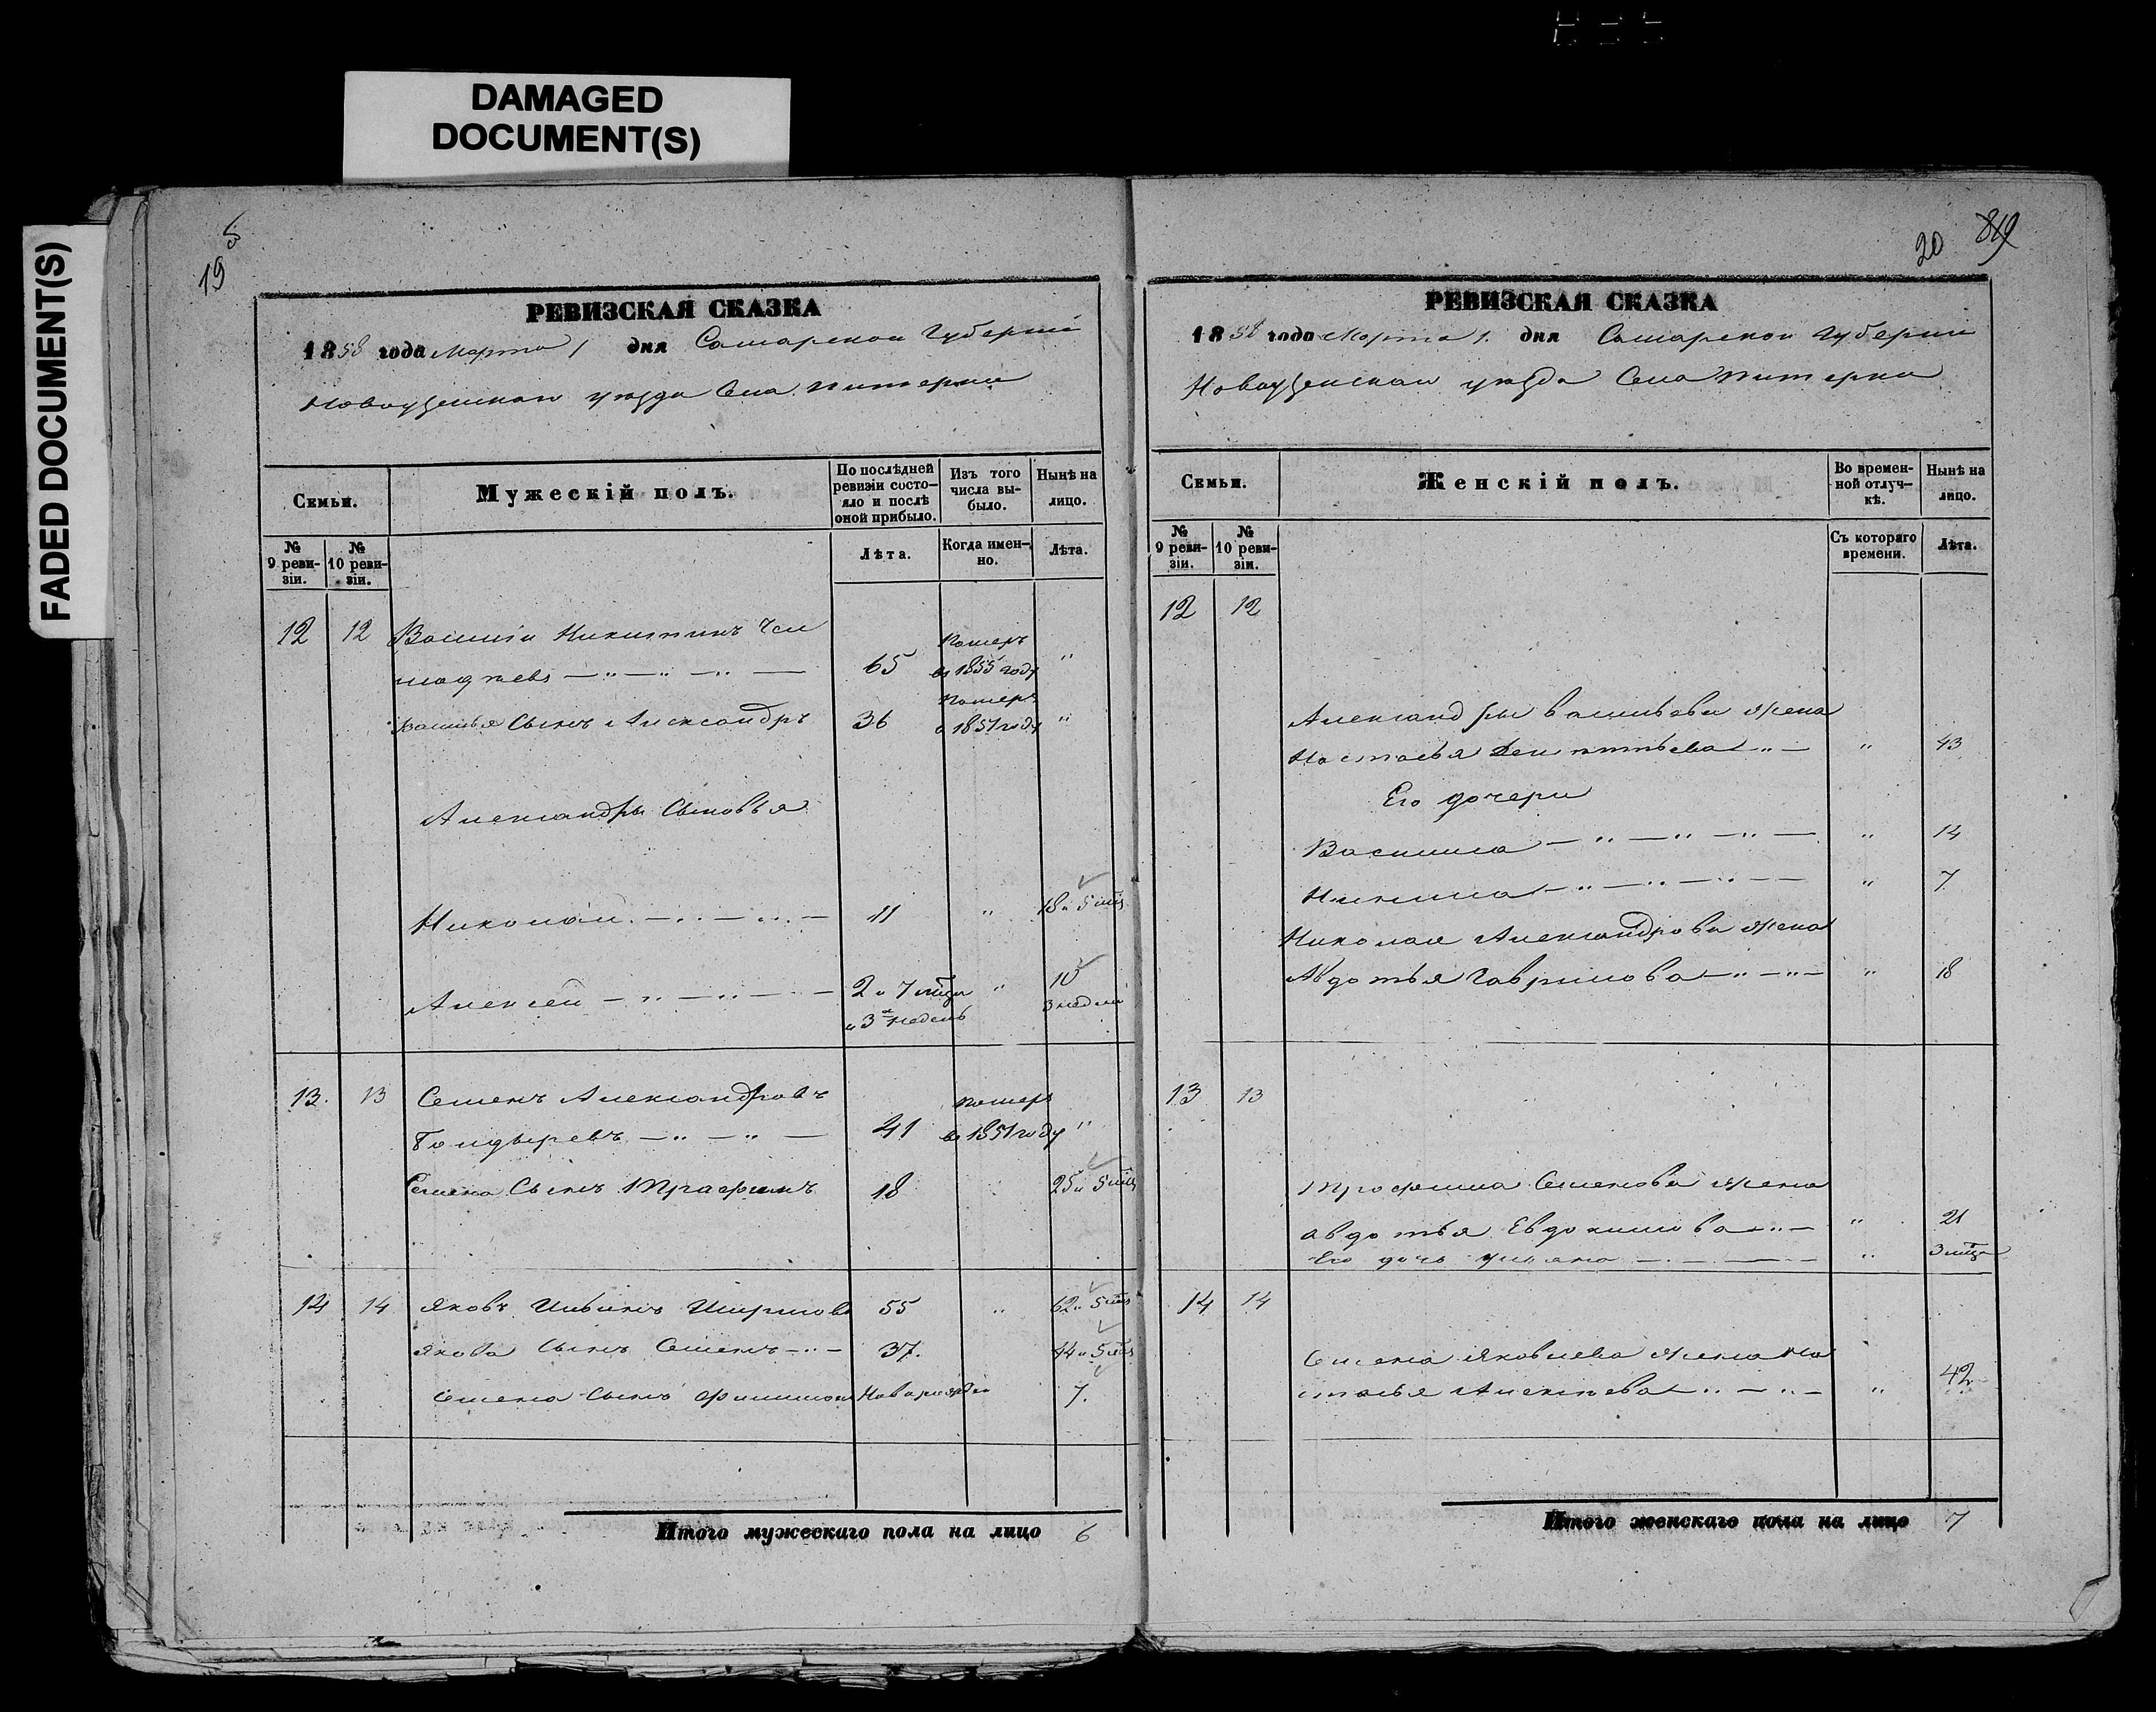 DAMAGED
DOCUMENT(S)
FADED DOCUMENT(S)
5
19
РЕВИЗСКАЯ СКАЗКА
1858 года Марта 1 дня Самарской Губернии
Новоузенскаго уезда Села Питерки
Семьи.
Мужескій полъ.
По послѣдней ревизіи состояло и послѣ оной прибыло.
Изъ того числа выбыло.
Нынѣ на лицо.
№ 9 ревизіи.
№ 10 ревизіи.
Лѣта.
Когда именно.
Лѣта.
12 12 Василій Никитинъ
65 Померъ въ 1855 году "
Василья Сынъ Александръ 36 Померъ 1851 году "
Александры Сыновья
Николай 11 " 18 и 5 мцъ
Алексей 2 и 7 мцъ и 3 недель " 10 3 недели
13. 13 Семенъ Александровъ
41 померъ въ 1851 году "
Семена Сынъ Трафимъ 18 25 и 5 мцъ
14 14 Яковъ Ивинъ 55 " 62 и 5 мцъ
Якова Сынъ Семенъ 37. 44 и 5 мцъ
Семена Сынъ Филипъ 7.
Итого мужескаго пола на лицо 6
20 819
РЕВИЗСКАЯ СКАЗКА
1858 года Марта 1. дня Самарской Губернии
Новоузенскаго уезда Села Питерки
Семьи.
Женскій полъ.
Во временной отлучкѣ.
Нынѣ на лицо.
№ 9 ревизіи.
№ 10 ревизіи.
Съ котораго времени.
Лѣта.
12 12
Александры Васильева жена
Настасья " 43
Его дочери
Василиса " 14
" 7
Николая Александрова жена
Авдотья Гаврилова " 18
13 13
Трофима Семенова жена
авдотья Евдокимова " 21
Его дочь " 3 мцъ
14 14
Семена Яковлева жена На
стасья Алексеева " 42
Итого женскаго пола на лицо 7